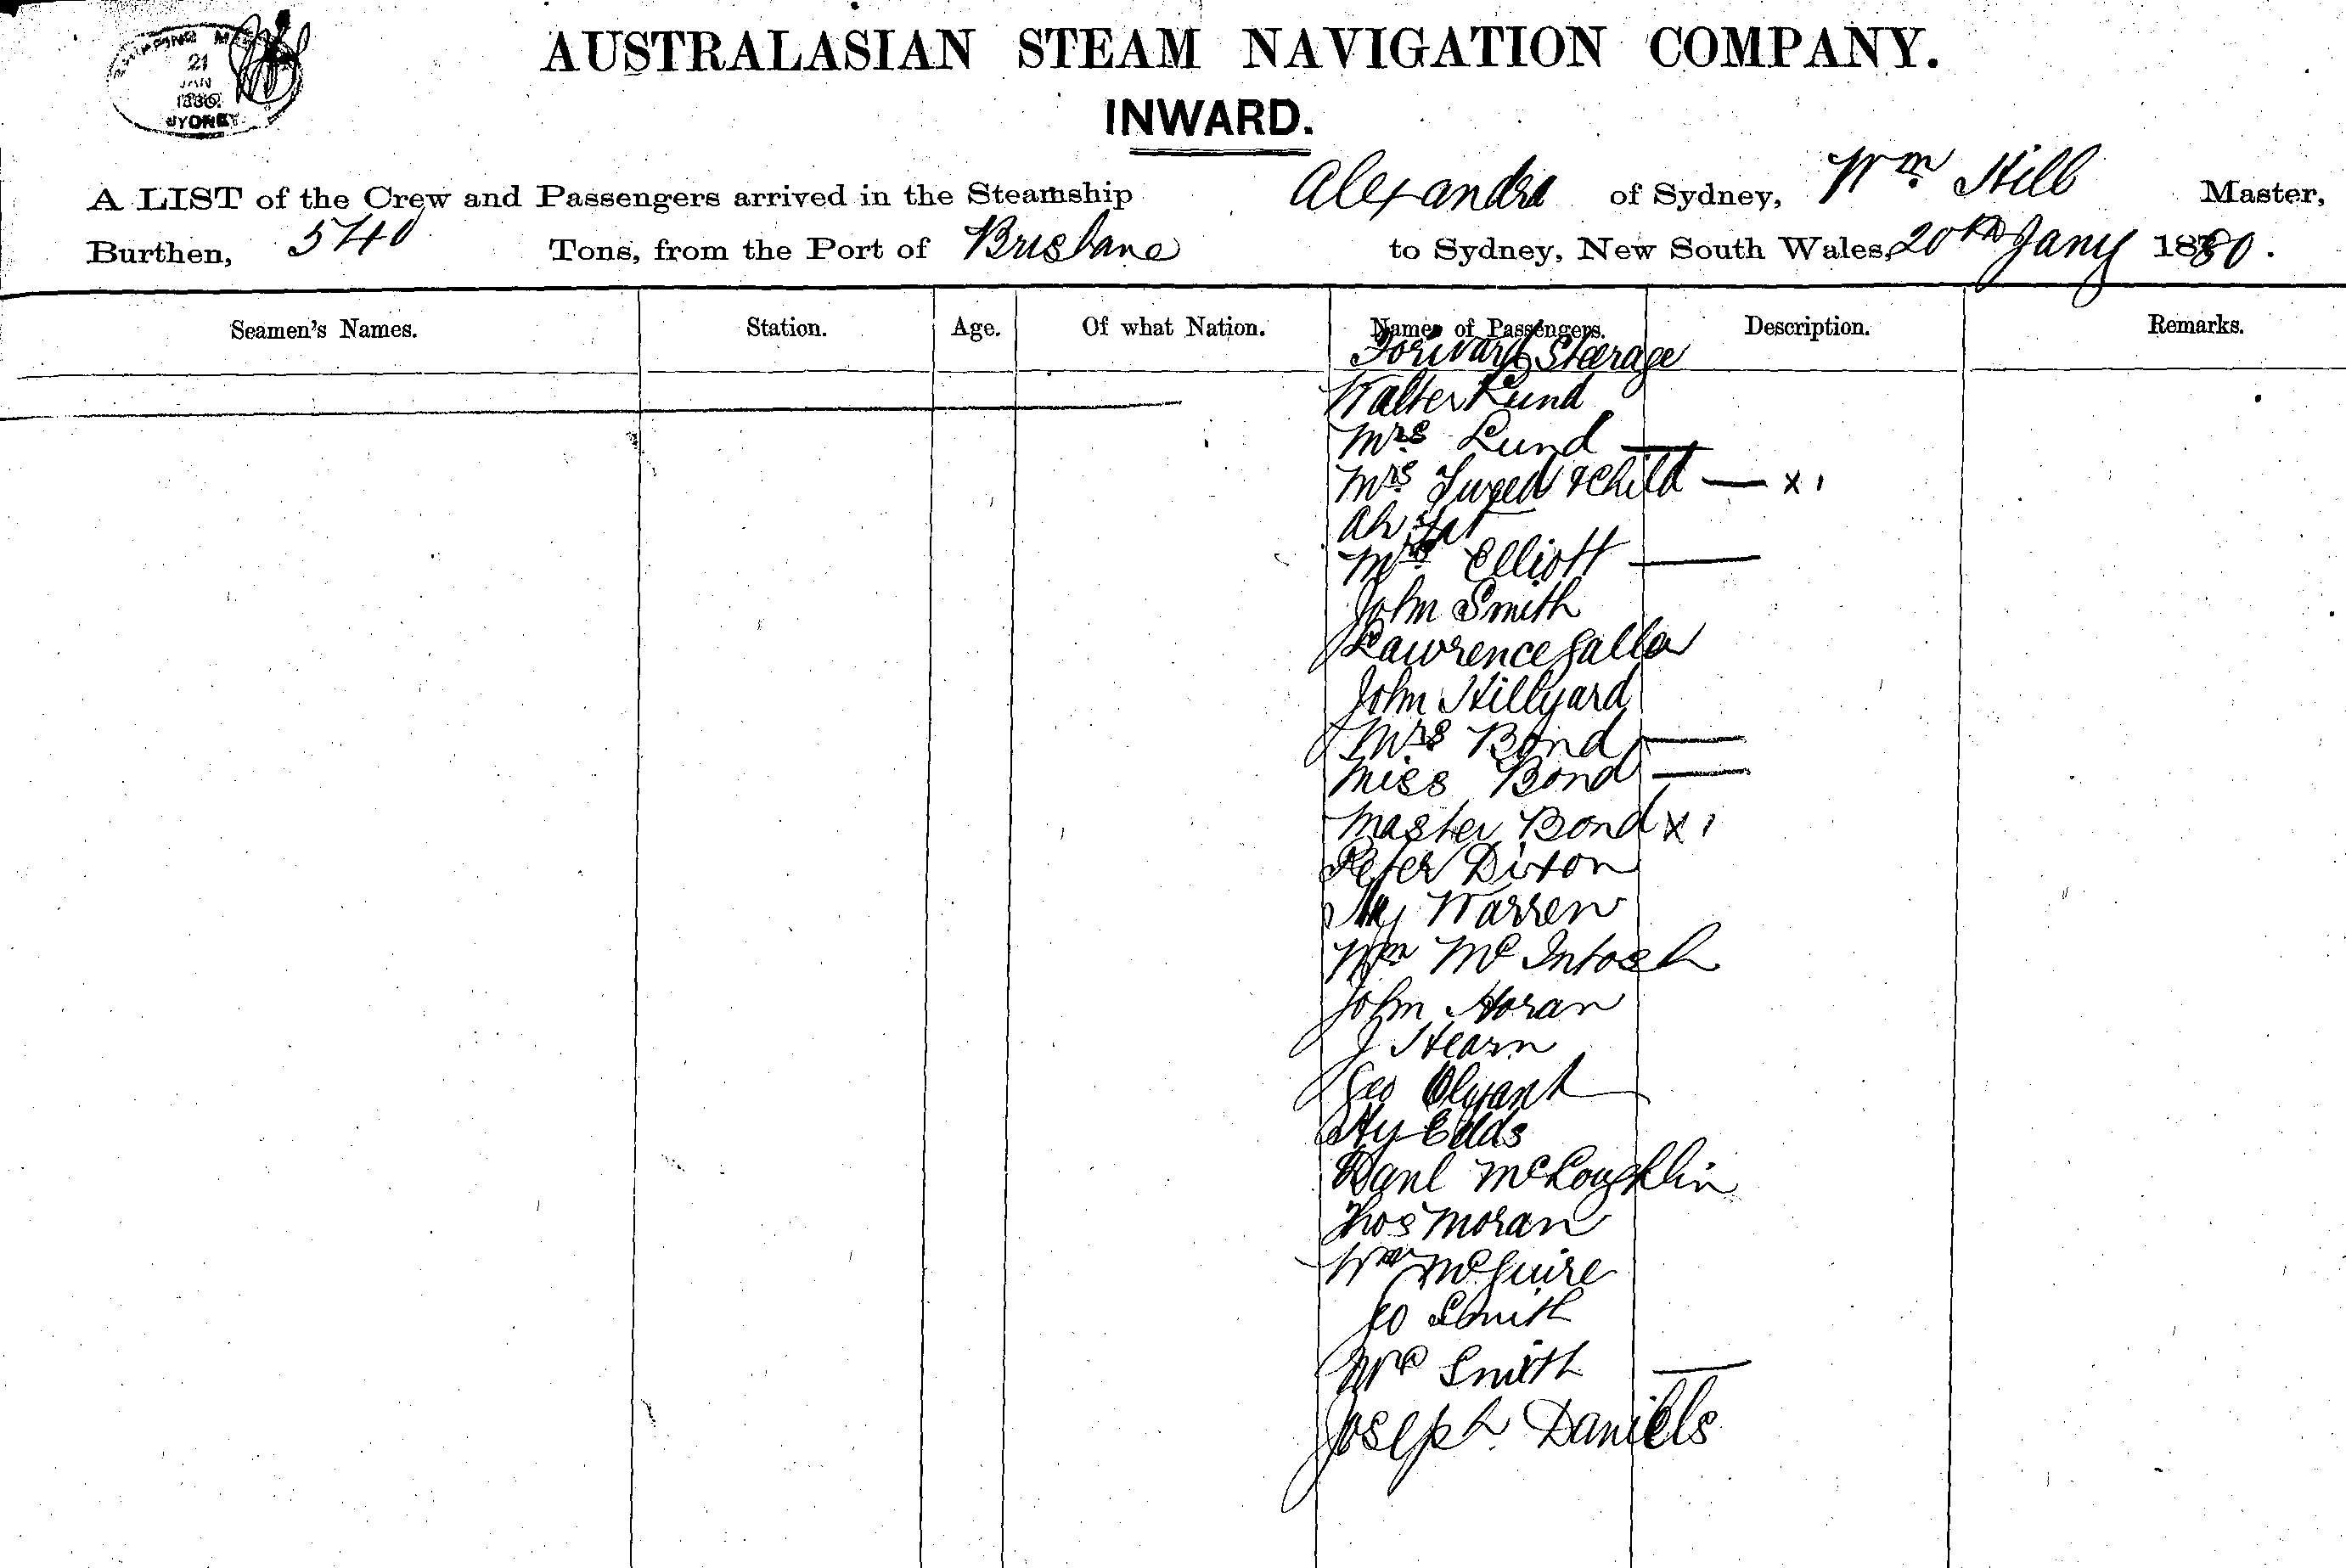 SHIPPING MASTER
21
JAN
1880
SYDNEY
AUSTRALASIAN STEAM NAVIGATION COMPANY.
INWARD.
A LIST of the Crew and Passengers arrived in the Steamship Alexandra of Sydney, Wm Hill Master,
Burthen, 540 Tons, from the Port of Brisbane to Sydney, New South Wales, 20th Jany 1880.
Seamen's Names. Station. Age. Of what Nation. Names of Passengers. Description. Remarks.
Forward Steerage
Walter Lund
Mrs Lund —
Mrs Tweed & Child — x 1
Ah Fat
Mrs Elliott —
John Smith
Lawrence Galla
John Hillyard
Mrs Bond —
Miss Bond —
Master Bond x 1
Peter Dixon
Hy Warren
Wm McIntosh
John Horan
J Hearn
Geo Olyant
Hy Edds
Danl McLoughlin
Thos Moran
Wm McGuire
Jo Smith
Mrs Smith —
Joseph Daniells